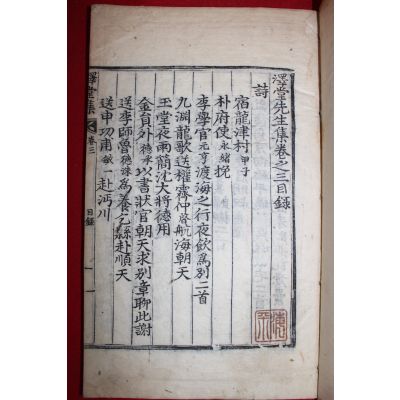 澤堂先生集卷之三目錄
詩
宿龍津村甲子
朴府使永緖挽
李學官元亨渡海之行夜飮爲別二首
九淵龍歌送權霽仲啓航海朝天
玉堂夜雨簡沈大將德用
金員外德承以書狀官朝天求別章聊此謝
送李師魯為養乞縣赴順天
送申功甫敏一赴沔川
澤堂集
卷三
目錄
一